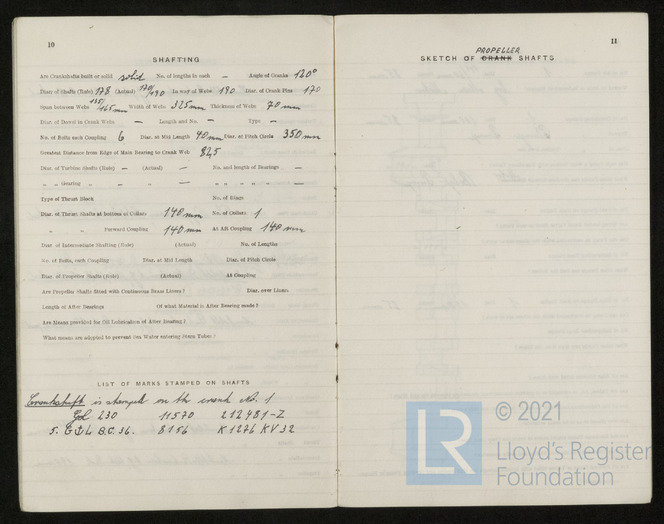 10
SHAFTING
Are Crankshafts built or solid solid No. of lengths in each - Angle of Cranks 120°
Diar. of Shafts (Rule) 178 (Actual) 170/190 In way of Webs 190 Diar. of Crank Pins 170
Span between Webs 155/165 mm Width of Webs 325 mm Thickness of Webs 70 mm
Diar. of Dowel in Crank Webs - Length and No. - Type -
No. of Bolts each Coupling 6 Diar. at Mid Length 40 mm Diar. of Pitch Circle 350 mm
Greatest Distance from Edge of Main Bearing to Crank Web 82,5
Diar. of Turbine Shafts (Rule) - (Actual) - No. and length of Bearings -
„ „ Gearing „ - „ - „ „ „ „ -
Type of Thrust Block No. of Rings
Diar. of Thrust Shafts at bottom of Collars 140 mm No. of Collars 1
„ „ Forward Coupling 140 mm At Aft Coupling 140 mm
Diar. of Intermediate Shafting (Rule) (Actual) No. of Lengths
No. of Bolts, each Coupling Diar. at Mid Length Diar. of Pitch Circle
Diar. of Propeller Shafts (Rule) (Actual) At Coupling
Are Propeller Shafts fitted with Continuous Brass Liners? Diar. over Liners
Length of After Bearings Of what Material is After Bearing made?
Are Means provided for Oil Lubrication of After Bearing?
What means are adopted to prevent Sea Water entering Stern Tubes?
LIST OF MARKS STAMPED ON SHAFTS
Crankshaft is stamped on the crank No. 1
230 11570 212481-Z
8156 K1276 KV32
11
PROPELLER
SKETCH OF CRANK SHAFTS
LR
© 2021
Lloyd's Register
Foundation